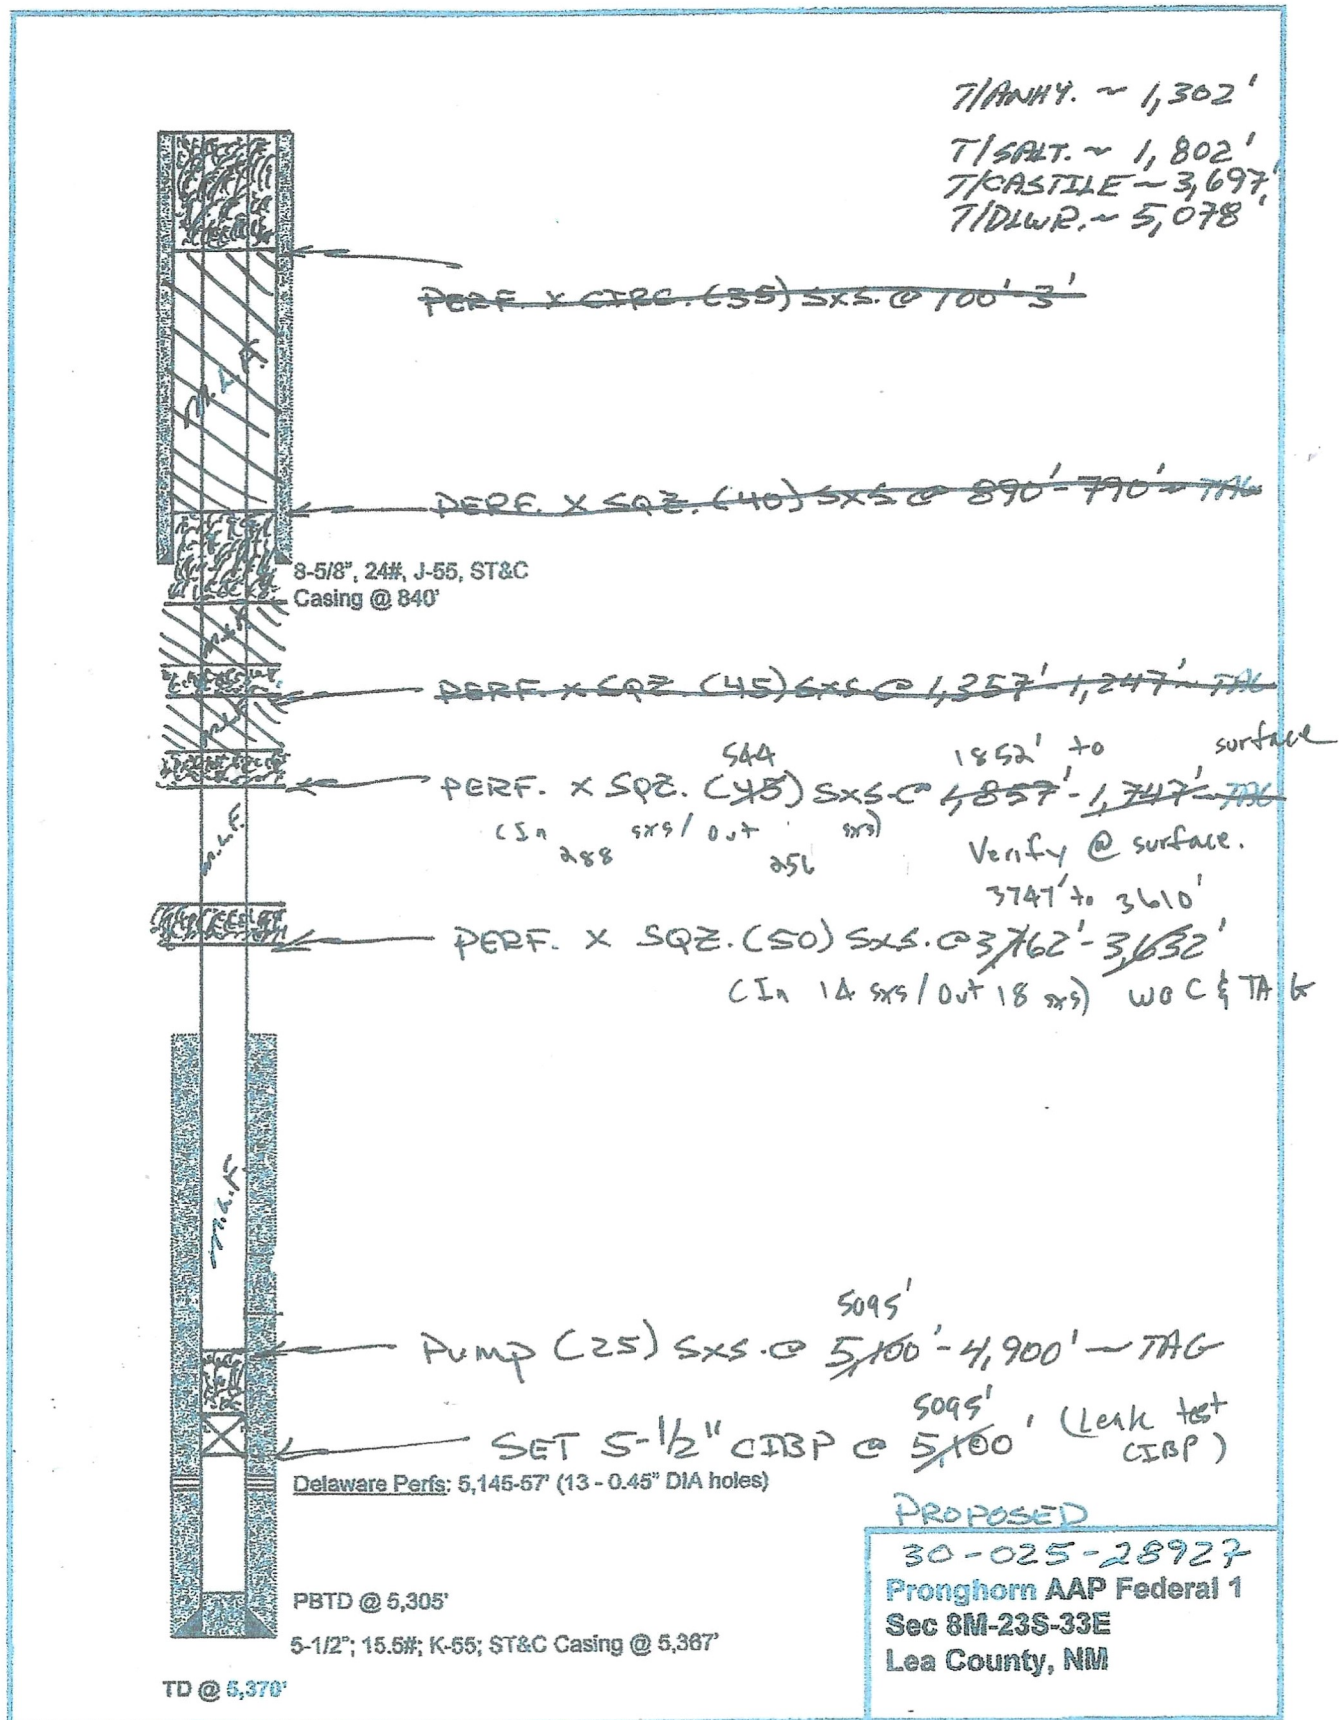 T/ANHY. ~ 1,302'
T/SALT. ~ 1,802'
T/CASTILE ~ 3,697'
T/DLWR. ~ 5,078'
PERF. X CIRC. (35) SXS. @ 100'-3'
M.L.F.
PERF. X SQZ. (40) SXS @ 890'-790' ~ TAG
8-5/8", 24#, J-55, ST&C
Casing @ 840'
M.L.F.
PERF. X SQZ. (45) SXS. @ 1,357'-1,247' ~ TAG
M.L.F.
544 1852' to surface
PERF. X SQZ. (45) SXS. @ 1,857'-1,747' ~ TAG
(In 288 sxs / out 256 sxs)
Verify @ surface.
M.L.F.
3747' to 3610'
PERF. X SQZ. (50) SXS. @ 3,762'-3,632'
(In 14 sxs / Out 18 sxs) WOC & TAG
M.L.F.
5095'
Pump (25) SXS. @ 5,100'-4,900' ~ TAG
5095'
SET 5-1/2" CIBP @ 5,100' (Leak test
CIBP)
Delaware Perfs: 5,145-57' (13 - 0.45" DIA holes)
PROPOSED
30-025-28927
Pronghorn AAP Federal 1
Sec 8M-23S-33E
Lea County, NM
PBTD @ 5,305'
5-1/2"; 15.5#; K-55; ST&C Casing @ 5,367'
TD @ 5,370'